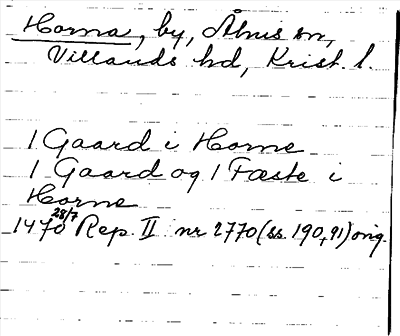 Horna, by, Åhus sn,
Villands hd, Krist. l.
1 Gaard i Horne
1 Gaard og 1 Fæste i
Horne
1470 28/7 Rep. II nr 2770 (ss. 190, 91) orig.